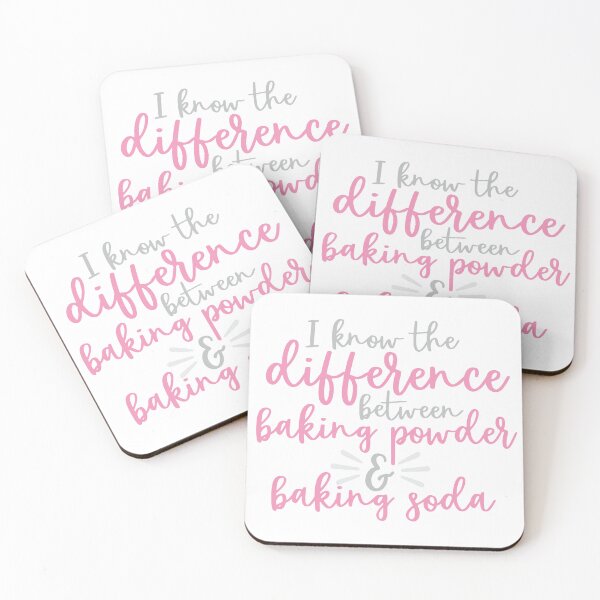 I know the
difference
between
I know the
difference
between
baking powder
&
I know the
difference
between
baking powder
&
baking
I know the
difference
between
baking powder
&
baking soda